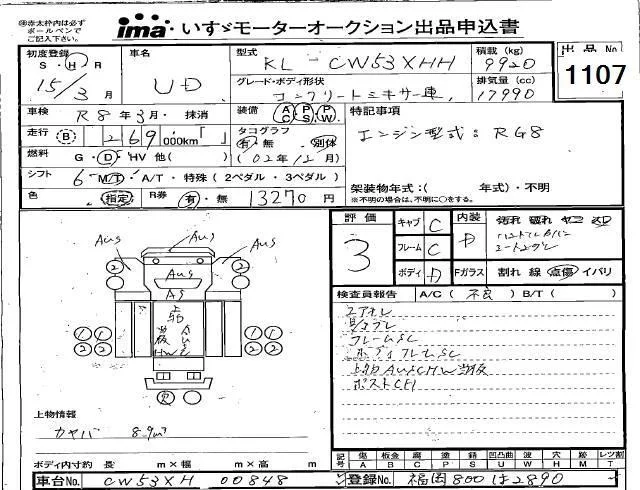 ㊟赤太枠内は必ず
ボールペンで
ご記入下さい。
ima いすゞモーターオークション出品申込書
初度登録 車名 型式 積載(kg) 出品No
S・H R 15/3月 UD KL-CW53XHH 9920 1107
グレード・ボディ形状 排気量(cc)
コンクリートミキサー車 17990
車検 R8年3月・抹消 装備 AC PS PW 特記事項
走行 B 269 000km「 」 タコグラフ 有・無 別体 エンジン型式:RG8
燃料 G・D・HV 他( ) (02年12月)
シフト 6 M/T・A/T・特殊(2ペダル・3ペダル) 架装物年式:( 年式)・不明
色 指定 R券 有・無 13270円 ※不明の場合は、不明に○をする。
評価 3 キャブ C 内装 D 汚れ 破れ ヤニ
フレーム C
ボディ D Fガラス 割れ 線 点傷 イバリ
検査員報告 A/C(不良) B/T( )
エアオレ
フレームSC
ボディフレームSC
ポストCH
AuS AuS AuS
AuS
AS
2 2
1 1 1 1
2 2 2 2
上物情報
カヤバ 8.9m³
ボディ内寸約 長 m×幅 m×高 m
記号 傷 板金 腐 塗 錆 凹凸曲 波 穴 跡 レツ割
A B C P S U W H M T
車台No. CW53XH 00848 登録No. 福岡800は2890